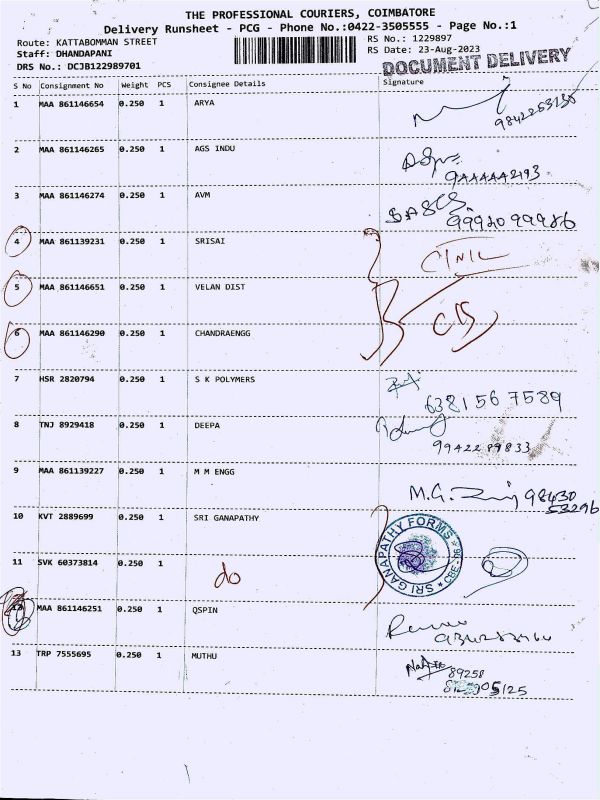 THE PROFESSIONAL COURIERS, COIMBATORE
Delivery Runsheet - PCG - Phone No.:0422-3505555 - Page No.:1
Route: KATTABOMMAN STREET
Staff: DHANDAPANI
DRS No.: DCJB122989701
RS No.: 1229897
RS Date: 23-Aug-2023
DOCUMENT DELIVERY
S No Consignment No Weight PCS Consignee Details Signature
1 MAA 861146654 0.250 1 ARYA
9842253130
2 MAA 861146265 0.250 1 AGS INDU
3 MAA 861146274 0.250 1 AVM
4 MAA 861139231 0.250 1 SRISAI
5 MAA 861146651 0.250 1 VELAN DIST
6 MAA 861146290 0.250 1 CHANDRAENGG
7 HSR 2820794 0.250 1 S K POLYMERS
6381567589
8 TNJ 8929418 0.250 1 DEEPA
9942289833
9 MAA 861139227 0.250 1 M M ENGG
M.G. 98430
53296
10 KVT 2889699 0.250 1 SRI GANAPATHY
SRI GANAPATHY FORMS ★ CBE-06 ★
11 SVK 60373814 0.250 1 do
12 MAA 861146251 0.250 1 QSPIN
13 TRP 7555695 0.250 1 MUTHU
89258
05125